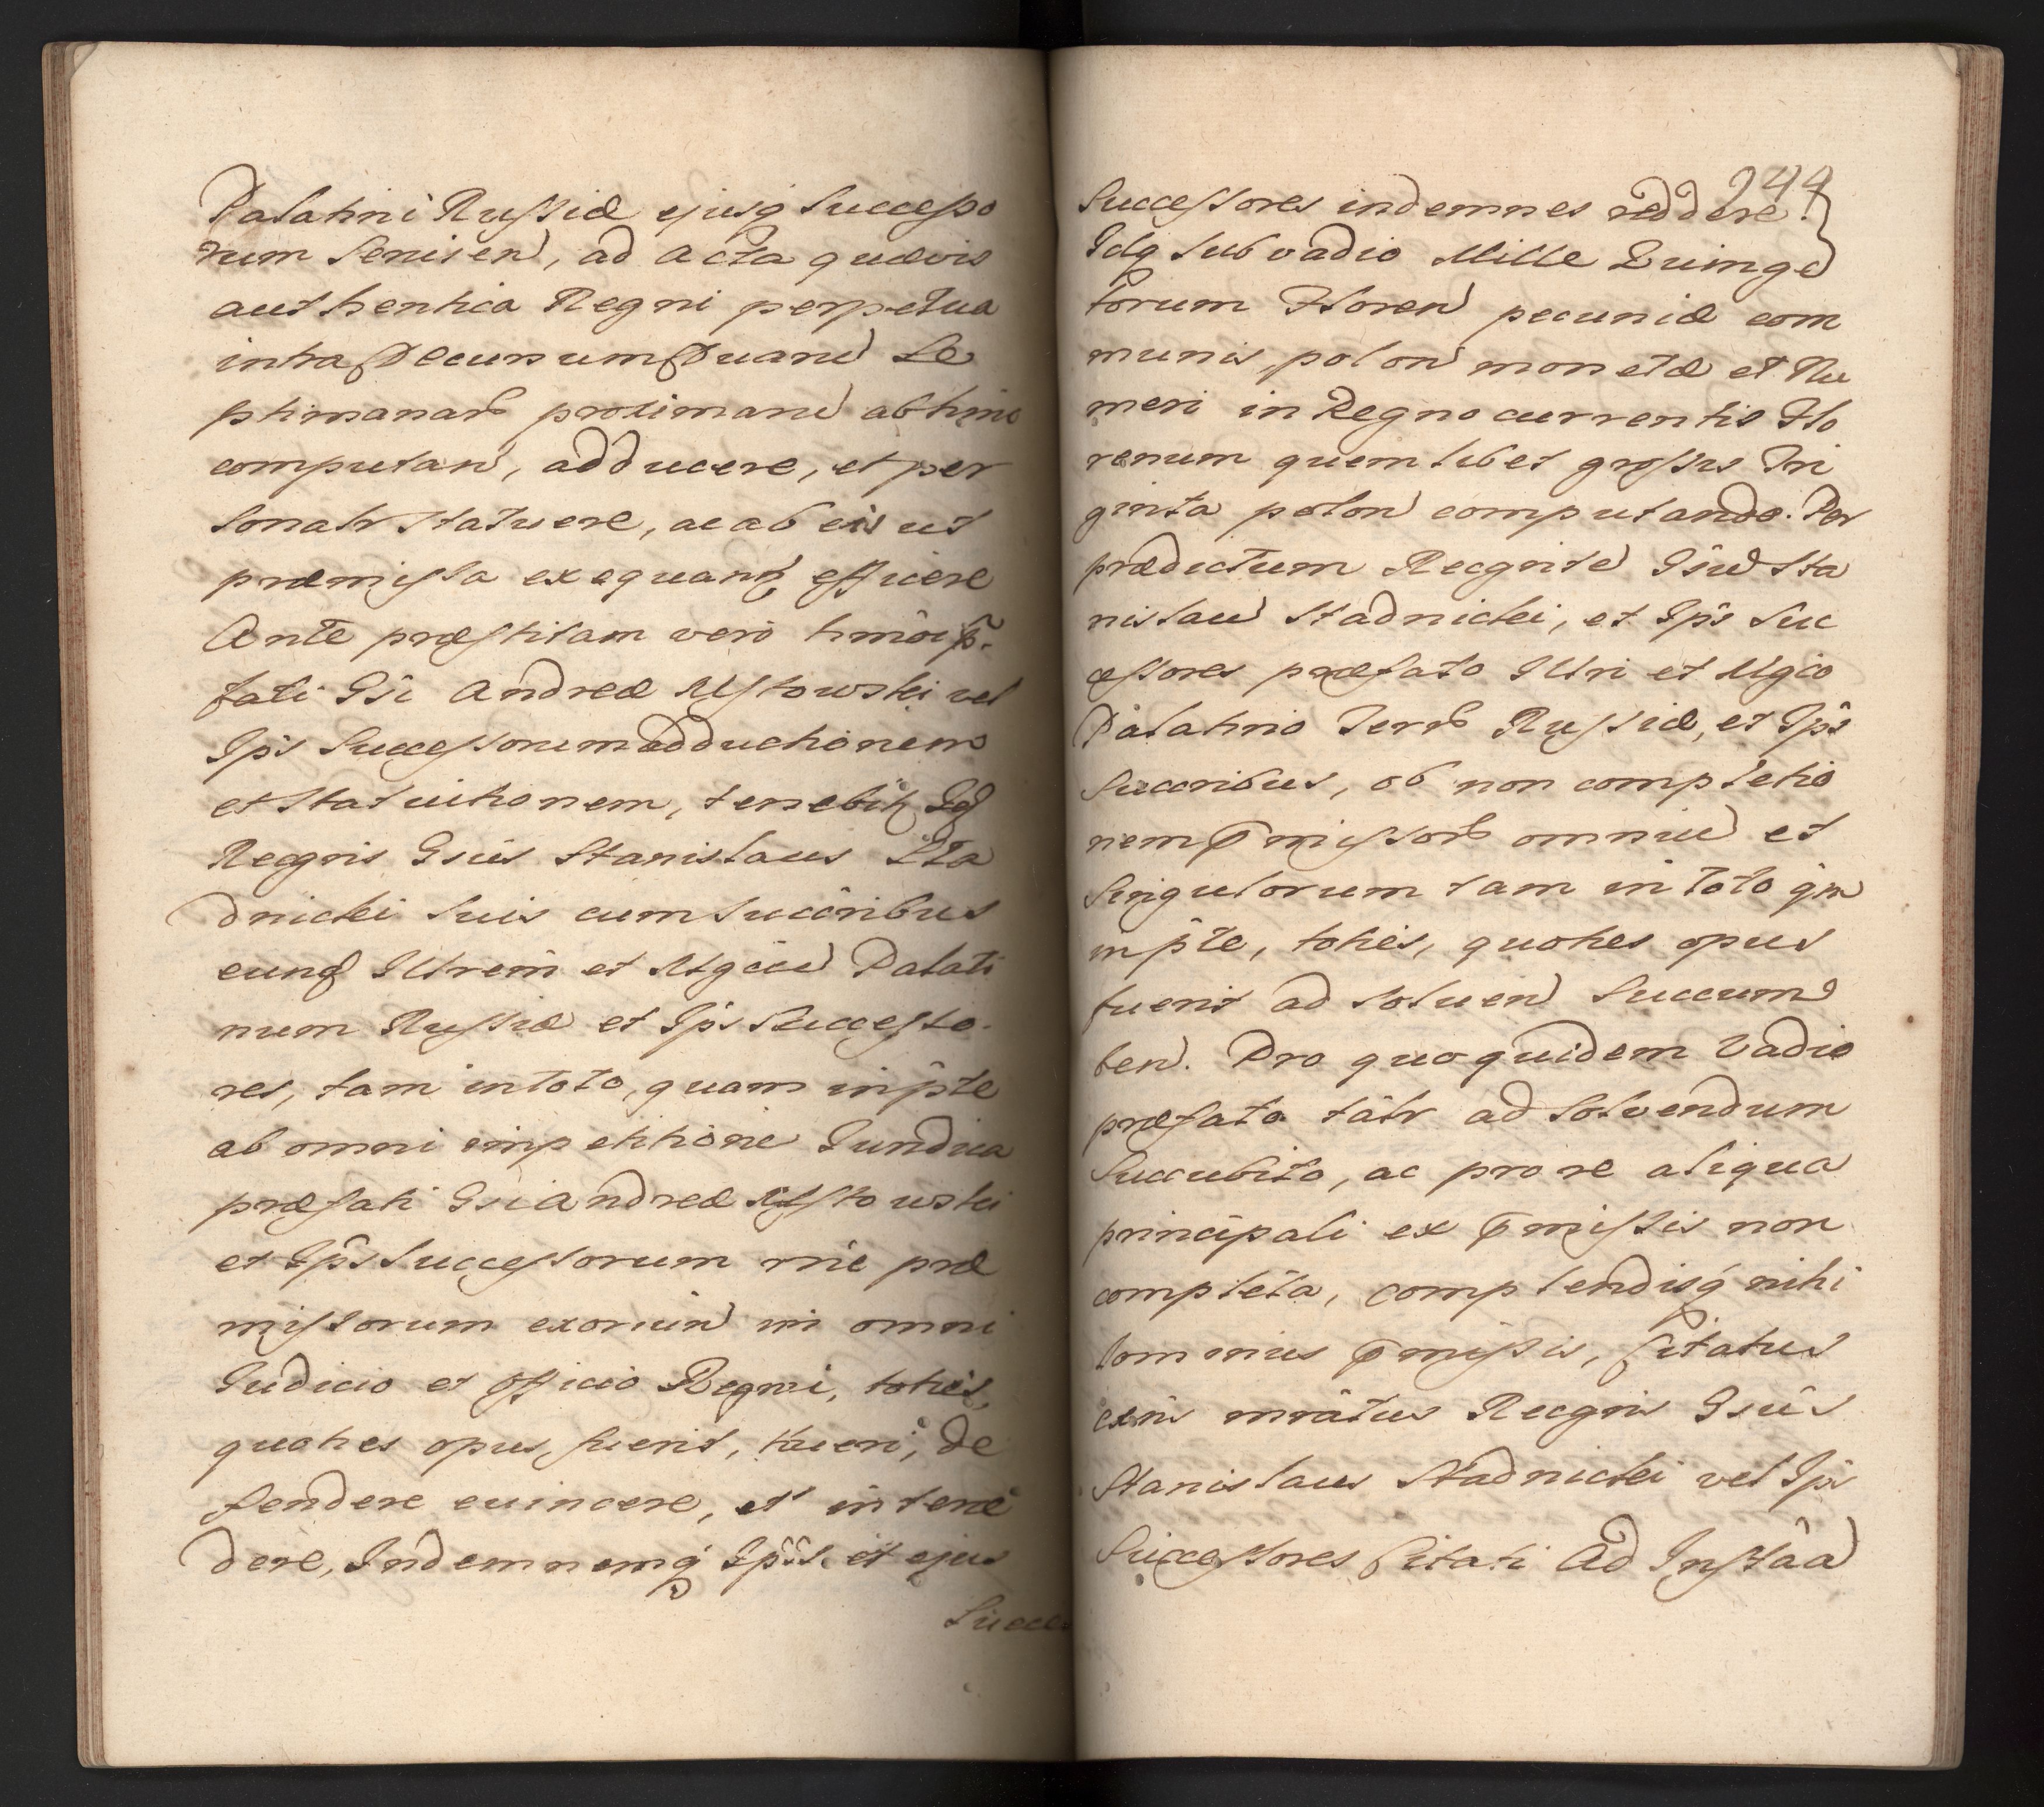 Palatini Russiæ ejusq Successo
rum Senisen, ad acta quævis
authentica Regni perpetua
intra decursum duaru Se
ptimanarb proximaru abhinc
computan, adducere, et per
sonalr statuere, ac ab eis ut
præmissa exequantr efficere
Ante præstitam vero hmõi p.
fati Gsi Andreæ Mstowski vel
Ips Successorum adductionem
et statuitionem, tenebitr Idq
Recgns Gsus Stanislaus Sta
dnicki suis cum succribus
eund Illrem et Mgcu Palati
num Russiæ et Ips Successo.
res, tam in toto, quam in pte
ab omni impetitione Juridica
præfati Gsi Andreæ Mstowski
et Ips Successorum rne præ
missorum exoriun in omni
Judicio et officio Regni, toties,
quoties opus fuerit, tueri, de
fendere evincere, et interce
dere, Indemnemq Ips et ejus
Succes
244
Successores indemnes reddere.
Idq sub vadio Mille Quinge
torum Floren pecuniæ com
munis polon monetæ et Nu
meri in Regno currentis Flo
renum quemlibet grossis Tri
ginta polon computando. Per
prædictum Recgnte Gsu Sta
nislau Stadnicki, et Ips Suc
cessores præfato Illri et Mgco
Palatino Terrb Russiæ, et Ips
Succribus, ob non completio
nem pmissorb omniu et
singulorum tam in toto qm
in pte, toties, quoties opus
fuerit ad solven succum
ben. Pro quo quidem Vadio
præfato talr ad solvendum
succubito, ac pro re aliqua
principali ex pmissis non
completa, complendisq nihi
lominus pmissis, Citatus
exns mratus Recgns Gsus
Stanislaus Stadnicki vel Ips
Successores Citati Ad Instãa